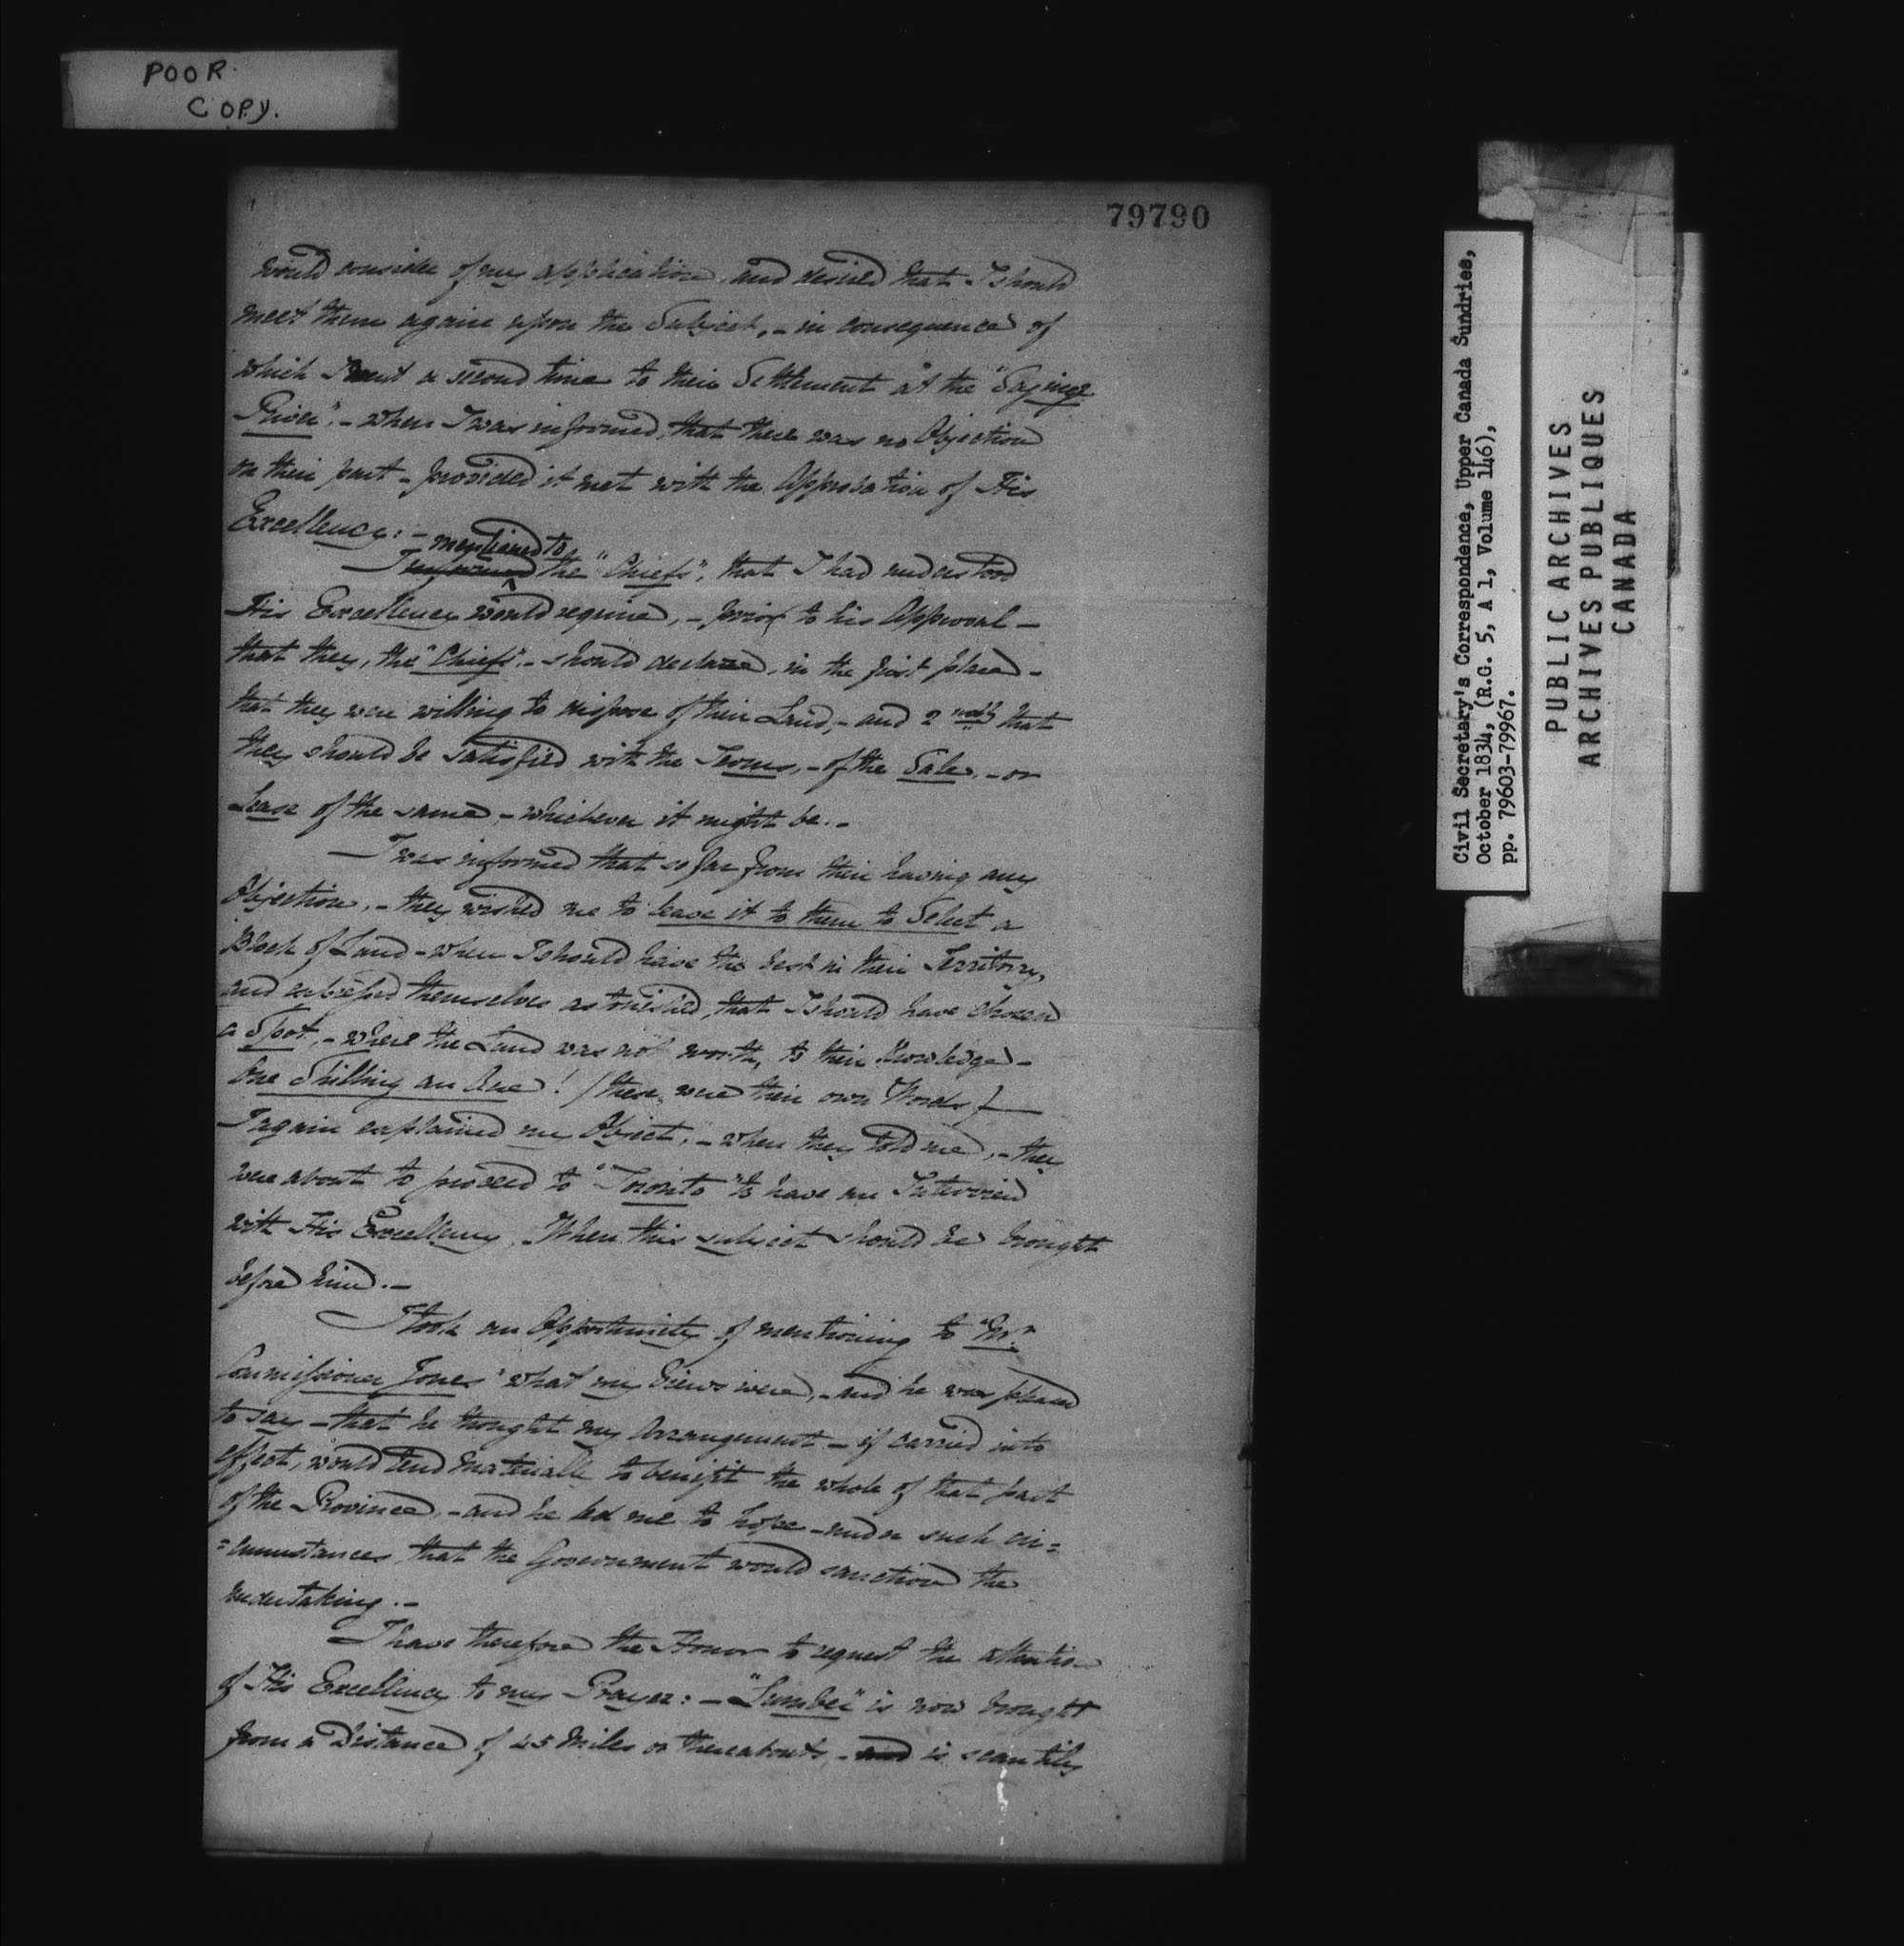 POOR
COPY.
79790
would consider of my application, and desired that I should
meet them again upon the Subject, - in consequence of
which I went a second time to their Settlement at the "Sajinge
River", - when I was informed, that there was no Objection
on their part - provided it met with the Approbation of His
Excellency: -
mentioned to
I informed the "Chiefs", that I had understood
His Excellency would require, - prior to his Approval -
that they, the "Chiefs", - should declare, in the first place -
that they were willing to dispose of their Land, - and 2ndly that
they should be satisfied with the Terms, - of the Sale, - or
Lease of the same, - whichever it might be. -
I was informed that so far from their having any
Objection, - they wished me to leave it to them to Select a
Block of Land - when I should have the best in their Territory,
and expressed themselves astonished, that I should have chosen
a Spot, - where the Land was not worth, to their Knowledge -
One Shilling an Acre! (these were their own Words)
I again explained my Object, - when they told me, - they
were about to proceed to "Toronto" to have an Interview
with His Excellency, When this subject should be brought
before him. -
I took an Opportunity of mentioning to "Mr.
Commissioner Jones" what my Views were, - and he was pleased
to say - that he thought my Arrangement - if carried into
effect, would tend materially to benefit the whole of that part
of the Province, - and he led me to hope - under such cir=
=cumstances, that the Government would sanction the
undertaking. -
I have therefore the Honor to request the attention
of His Excellency to my Prayer: - "Lumber" is now brought
from a Distance of 45 Miles or thereabouts, - and is scantily
Civil Secretary's Correspondence, Upper Canada Sundries,
October 1834, (R.G. 5, A 1, Volume 146),
pp. 79603-79967.
PUBLIC ARCHIVES
ARCHIVES PUBLIQUES
CANADA